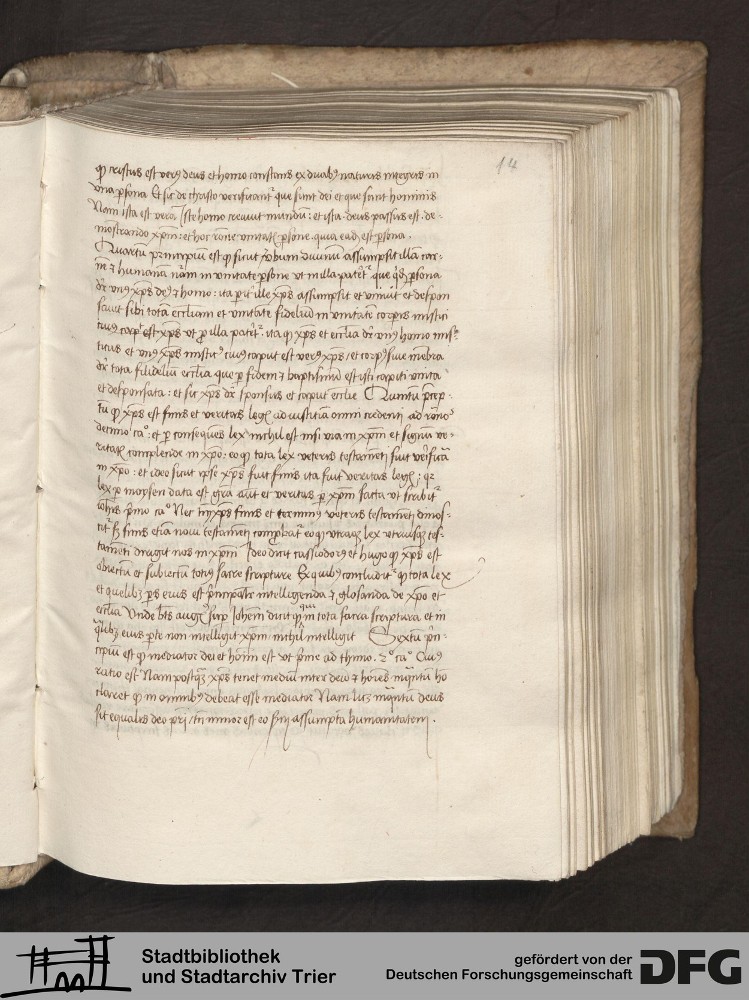 14
qp cristus est verus deus et homo constans ex duabus naturis integris in
vna persona Et sic de christo verificantur que sunt dei et que sunt hominis
Nam ista est vera Iste homo creauit mundum : et ista deus passus est . de-
mostrando xpm : et hoc rone vnitatis persone . quia eadem est persona .
Quartum principium est qp sicut verbum diuinum assumpsit illam car-
nem et humanam naturam in vnitate persone vt in illa patet que quidem persona
dicitur vnus xps deus et homo : ita ille xps assumpsit et vniuit et despon
sauit sibi totam ecclesiam et vnitate fidelium in vnitate corporis mistici
cuius caput est xps vt illa patet . ita qp xps et ecclesia dicitur vnus homo mis-
ticus et vnus xps misticus cuius caput est verus xps / et corpus siue membra
dicitur tota fidelium ecclesia que per fidem et baptismum est isti capiti vnita
et desponsata : et sic xps dicitur sponsus et caput ecclesie Quintum princip-
ium qp xps est finis et veritas legis ad iusticiam omni credenti ad romanos
decimo ca° : et per consequens lex nichil est nisi via in xpm et signum ve-
ritatis complende in xpo : eo qp tota lex veteris testamenti fuit verificata
in xpo : et ideo sicut ipse xps fuit finis ita fuit veritas legis : quia
lex per moysen data est gratia autem et veritas per xpm facta vt scribitur
iohannis primo ca° Nec tamen xps finis et terminus veteris testamenti dinos-
citur sed finis etiam noui testamenti comprobatur eo qp vtraque lex vtriusque tes-
tamenti dirigit nos in xpm Ideo dicit cassiodorus et hugo qp xps est
obiectum et subiectum totius sacre scripture Ex quibus concluditur qp tota lex
et quelibet pars eius est principaliter intelligenda et glosanda de xpo et
ecclesia Vnde beatus augustinus super Iohannem dicit qp qui in tota sacra scriptura et in
qualibet eius parte non intelligit xpm / nichil intelligit Sextum prin-
cipium est qp mediator dei et hominum est vt prime ad thimo . 2° ca° Cuius
ratio est Nam postquam xps tenet medium inter deum et homines inquantum homo
claret qp in omnibus debeat esse mediator Nam licet inquantum deus
sit equalis deo patri / tamen minor est eo secundum assumptam humanitatem .
Stadtbibliothek
und Stadtarchiv Trier
gefördert von der
Deutschen Forschungsgemeinschaft
DFG